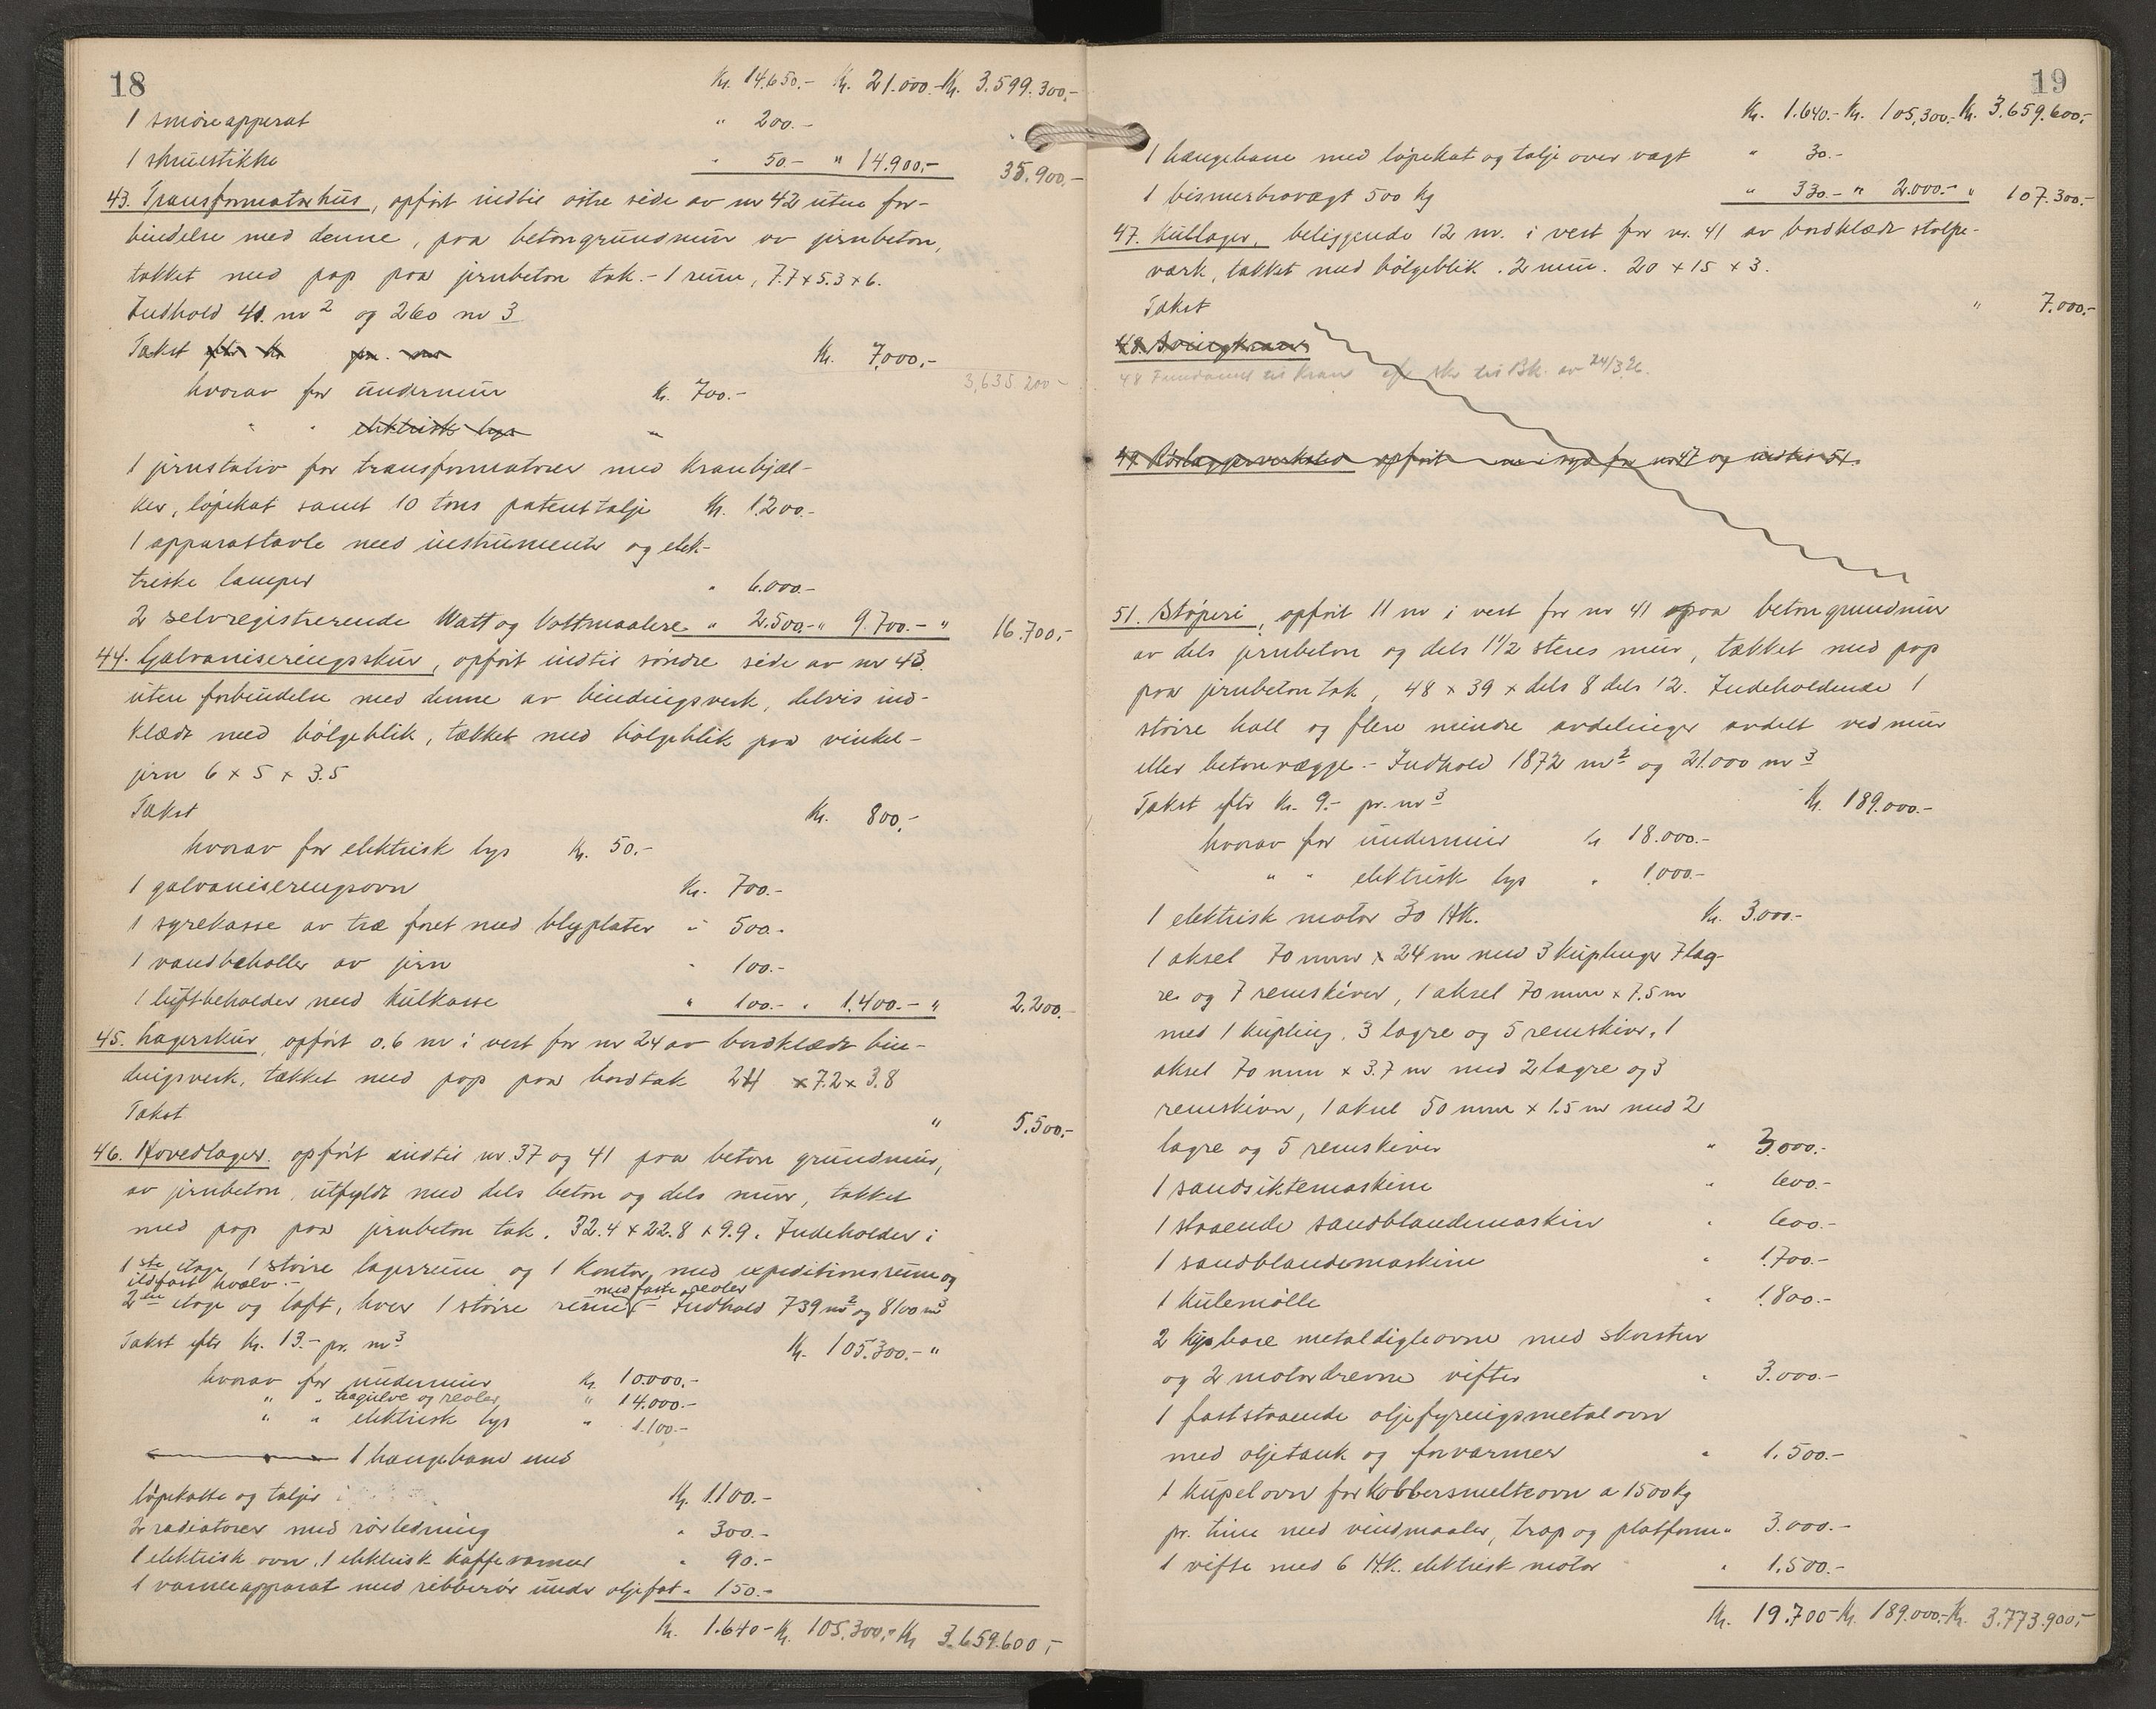 18
Kr. 14.650.- Kr. 21.000.- Kr. 3.599.300.-
1 smøreapparat " 200.-
1 skruestikke " 50.- " 14.900.- 35.900.-
43. Transformatorhus, opført indtil østre side av nr 42 uten for-
bindelse med denne, paa betongrundmur av jernbeton,
tækket med pap paa jernbeton tak. - 1 rum, 7.7 x 5.3 x 6.
Indhold 41. m2 og 260 m3
Takst efter Kr pr. m Kr. 7.000.-
3,635 200 -
hvorav for undermur Kr. 700.-
" " elektrisk lys "
1 jernstativ for transformatorer med kranbjæl-
ker, løpekat samt 10 tons patenttalje Kr. 1.200.-
1 apparattavle med instrumenter og elek-
triske lamper " 6.000.-
2 selvregistrerende Watt og Voltmaalere " 2.500.- " 9.700.- " 16.700.-
44. Galvaniseringsskur, opført indtil søndre side av nr 43.
uten forbindelse med denne av bindingsverk, delvis ind-
klædt med bølgeblik, tækket med bølgeblik paa vinkel-
jern 6 x 5 x 3.5
Takst Kr. 800.-
hvorav for elektrisk lys Kr. 50.-
1 galvaniseringsovn Kr. 700.-
1 syrekasse av træ foret med blyplater " 500.-
1 vandbeholder av jern " 100.-
1 luftbeholder med kulkasse " 100.- " 1.400.- " 2.200.-
45. Lagerskur, opført 0.6 m i vest for nr 24 av bordklædt bin-
dingsverk, tækket med pap paa bordtak 24 x 7.2 x 3.8
Takst " 5.500.-
46. Hovedlager. opført indtil nr. 37 og 41 paa beton grundmur,
av jernbeton, utfyldt med dels beton og dels mur, tækket
med pap paa jernbeton tak. 32.4 x 22.8 x 9.9. Indeholder i
1ste etage 1 større lagerrum og 1 kontor med expeditionsrum og
ildfast hvælv. -
med faste reoler
2en etage og loft, hver 1 større rum - Indhold 739 m2 og 8100 m3
Takst efter Kr. 13.- pr. m3 Kr. 105.300.- "
hvorav for undermur Kr. 10.000.-
" " trægulve og reoler " 14.000.-
" " elektrisk lys " 1.100.-
1 hængebane med
løpekatte og taljer Kr. 1.100.-
2 radiatorer med rørledning " 300.-
1 elektrisk ovn, 1 elektrisk kaffevarmer " 90.-
1 varmeapparat med ribberør under oljefat " 150.-
Kr. 1.640.- Kr. 105.300.- Kr 3.659.600.-
19
Kr. 1.640.- Kr. 105.300.- Kr. 3.659.600.-
1 hængebane med løpekat og talje over vægt " 30.-
1 bismerbrovægt 500 kg " 330.- " 2.000.- " 107.300.-
47. Kullager, beliggende 12 m. i vest for nr. 41 av bordklædt stolpe-
værk, tækket med bølgeblik. 2 rum. 20 x 15 x 3.
Takst " 7.000.-
48. Svingkran
48 Fundament til Kran efter skr til Bk. av 24/3.26.
49. Rørlæggerverksted opført m i syd for nr 47 og indtil 51.
51. Støperi, opført 11 m i vest for nr 41 paa beton grundmur
av dels jernbeton og dels 1 1/2 stens mur, tækket med pap
paa jernbeton tak, 48 x 39 x dels 8 dels 12. Indeholdende 1
større hall og flere mindre avdelinger avdelt ved mur
eller betonvægge. - Indhold 1872 m2 og 21.000 m3
Takst efter Kr. 9.- pr. m3 Kr. 189.000.-
hvorav for undermur Kr 18.000.-
" " elektrisk lys " 1.000.-
1 elektrisk motor 30 HK. Kr. 3.000.-
1 aksel 70 mm x 24 m med 3 kuplinger 7 lag-
re og 7 remskiver, 1 aksel 70 mm x 7.5 m
med 1 kupling, 3 lagre og 5 remskiver, 1
aksel 70 mm x 3.7 m med 2 lagre og 3
remskiver, 1 aksel 50 mm x 1.5 m med 2
lagre og 5 remskiver " 3.000.-
1 sandsiktemaskine " 600.-
1 staaende sandblandemaskin " 600.-
1 sandblandemaskine " 1.700.-
1 kulemølle " 1.800.-
2 kipbare metaldigleovne med skorsten
og 2 motordrevne vifter " 3.000.-
1 faststaaende oljefyringsmetalovn
med oljetank og forvarmer " 1.500.-
1 kupelovn for kobbersmelteovn a 1500 kg
pr. time med vindmaaler, trap og platform " 3.000.-
1 vifte med 6 HK. elektrisk motor " 1.500.-
Kr. 19.700.- Kr. 189.000.- Kr. 3.773.900.-